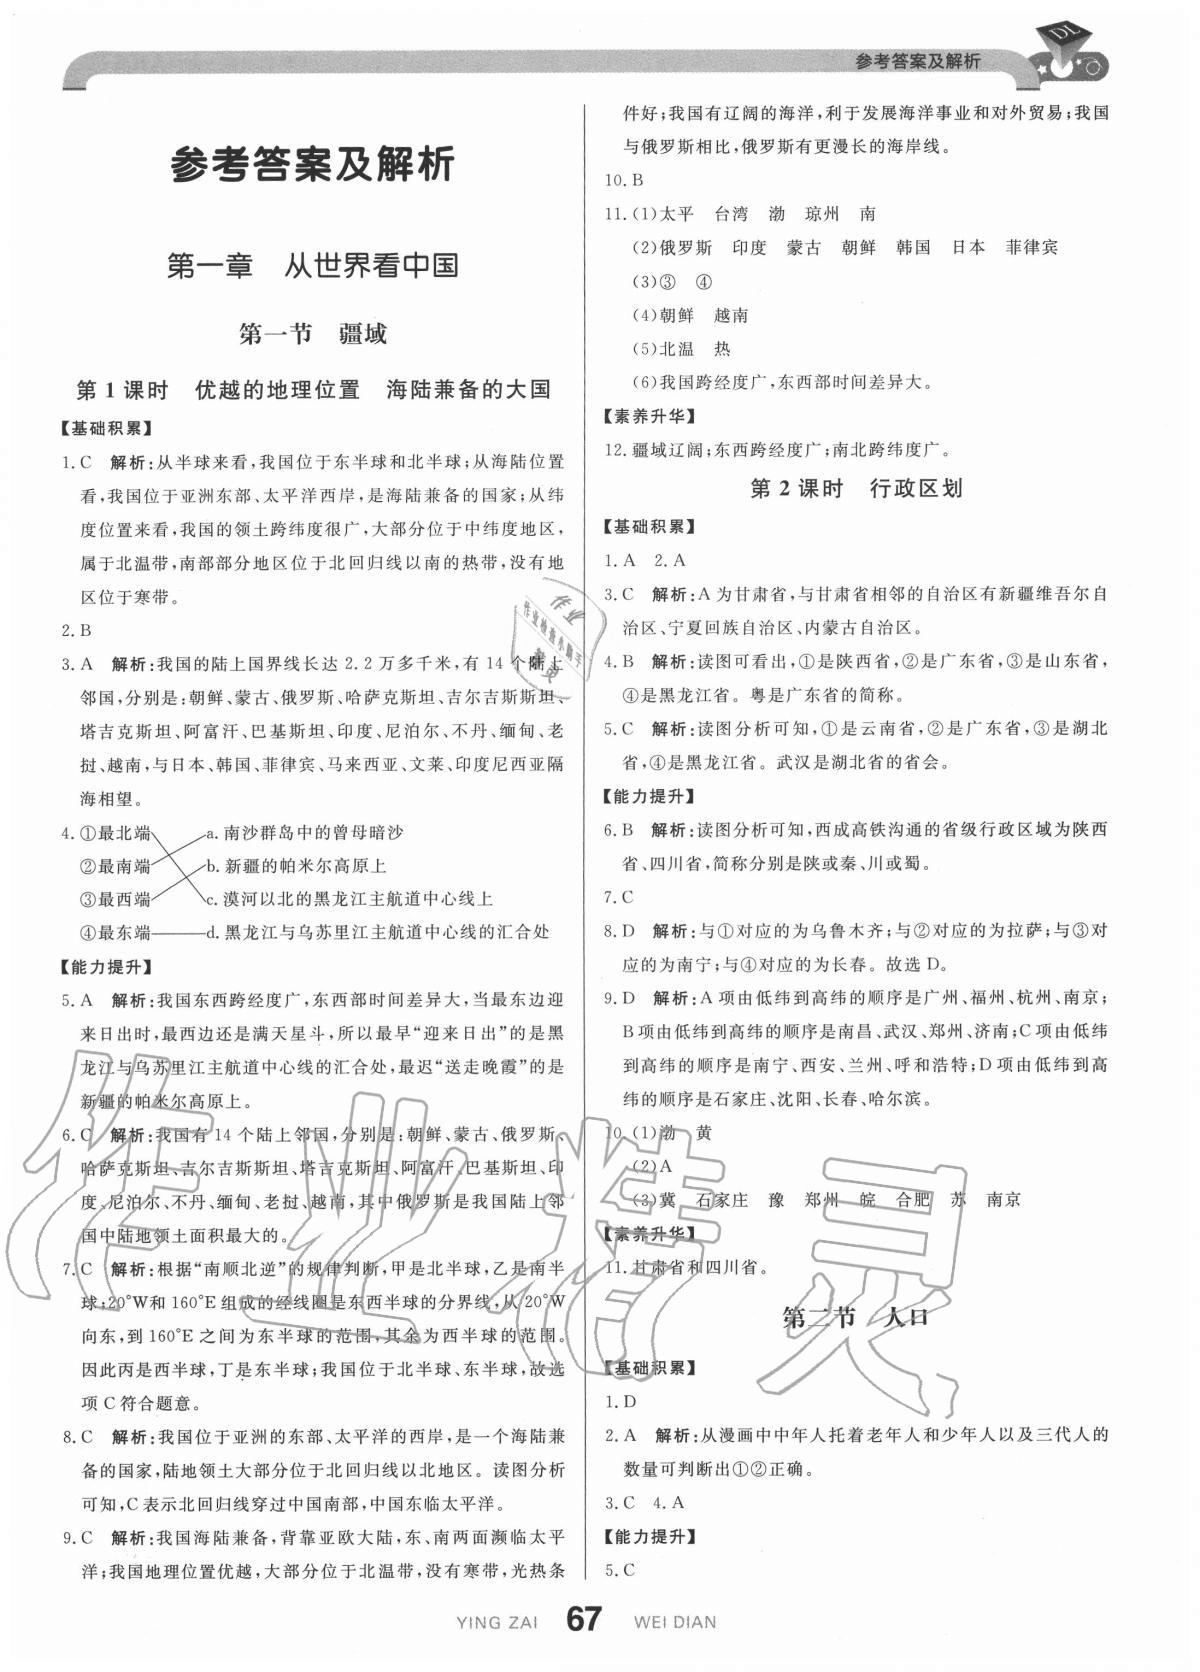 参考答案及解析
DL
参考答案及解析
第一章 从世界看中国
第一节 疆域
第1课时 优越的地理位置 海陆兼备的大国
【基础积累】
1. C 解析:从半球来看,我国位于东半球和北半球;从海陆位置
看,我国位于亚洲东部、太平洋西岸,是海陆兼备的国家;从纬
度位置来看,我国的领土跨纬度很广,大部分位于中纬度地区,
属于北温带,南部部分地区位于北回归线以南的热带,没有地
区位于寒带。
2. B
3. A 解析:我国的陆上国界线长达2.2万多千米,有14个陆上
邻国,分别是:朝鲜、蒙古、俄罗斯、哈萨克斯坦、吉尔吉斯斯坦、
塔吉克斯坦、阿富汗、巴基斯坦、印度、尼泊尔、不丹、缅甸、老
挝、越南,与日本、韩国、菲律宾、马来西亚、文莱、印度尼西亚隔
海相望。
4. ①最北端 a. 南沙群岛中的曾母暗沙
②最南端 b. 新疆的帕米尔高原上
③最西端 c. 漠河以北的黑龙江主航道中心线上
④最东端 d. 黑龙江与乌苏里江主航道中心线的汇合处
【能力提升】
5. A 解析:我国东西跨经度广,东西部时间差异大,当最东边迎
来日出时,最西边还是满天星斗,所以最早“迎来日出”的是黑
龙江与乌苏里江主航道中心线的汇合处,最迟“送走晚霞”的是
新疆的帕米尔高原上。
6. C 解析:我国有14个陆上邻国,分别是:朝鲜、蒙古、俄罗斯、
哈萨克斯坦、吉尔吉斯斯坦、塔吉克斯坦、阿富汗、巴基斯坦、印
度、尼泊尔、不丹、缅甸、老挝、越南,其中俄罗斯是我国陆上邻
国中陆地领土面积最大的。
7. C 解析:根据“南顺北逆”的规律判断,甲是北半球,乙是南半
球;20°W和160°E组成的经线圈是东西半球的分界线,从20°W
向东,到160°E之间为东半球的范围,其余为西半球的范围。
因此丙是西半球,丁是东半球;我国位于北半球、东半球,故选
项C符合题意。
8. C 解析:我国位于亚洲的东部、太平洋的西岸,是一个海陆兼
备的国家,陆地领土大部分位于北回归线以北地区。读图分析
可知,C表示北回归线穿过中国南部,中国东临太平洋。
9. C 解析:我国海陆兼备,背靠亚欧大陆,东、南两面濒临太平
洋;我国地理位置优越,大部分位于北温带,没有寒带,光热条
件好;我国有辽阔的海洋,利于发展海洋事业和对外贸易;我国
与俄罗斯相比,俄罗斯有更漫长的海岸线。
10. B
11. (1)太平 台湾 渤 琼州 南
(2)俄罗斯 印度 蒙古 朝鲜 韩国 日本 菲律宾
(3)③ ④
(4)朝鲜 越南
(5)北温 热
(6)我国跨经度广,东西部时间差异大。
【素养升华】
12. 疆域辽阔;东西跨经度广;南北跨纬度广。
第2课时 行政区划
【基础积累】
1. A 2. A
3. C 解析:A为甘肃省,与甘肃省相邻的自治区有新疆维吾尔自
治区、宁夏回族自治区、内蒙古自治区。
4. B 解析:读图可看出,①是陕西省,②是广东省,③是山东省,
④是黑龙江省。粤是广东省的简称。
5. C 解析:读图分析可知,①是云南省,②是广东省,③是湖北
省,④是黑龙江省。武汉是湖北省的省会。
【能力提升】
6. B 解析:读图分析可知,西成高铁沟通的省级行政区域为陕西
省、四川省,简称分别是陕或秦、川或蜀。
7. C
8. D 解析:与①对应的为乌鲁木齐;与②对应的为拉萨;与③对
应的为南宁;与④对应的为长春。故选D。
9. D 解析:A项由低纬到高纬的顺序是广州、福州、杭州、南京;
B项由低纬到高纬的顺序是南昌、武汉、郑州、济南;C项由低纬
到高纬的顺序是南宁、西安、兰州、呼和浩特;D项由低纬到高
纬的顺序是石家庄、沈阳、长春、哈尔滨。
10. (1)渤 黄
(2)A
(3)冀 石家庄 豫 郑州 皖 合肥 苏 南京
【素养升华】
11. 甘肃省和四川省。
第二节 人口
【基础积累】
1. D
2. A 解析:从漫画中中年人托着老年人和少年人以及三代人的
数量可判断出①②正确。
3. C 4. A
【能力提升】
5. C
YING ZAI 67 WEI DIAN
作业
作业检查小助手
精灵
作业精灵